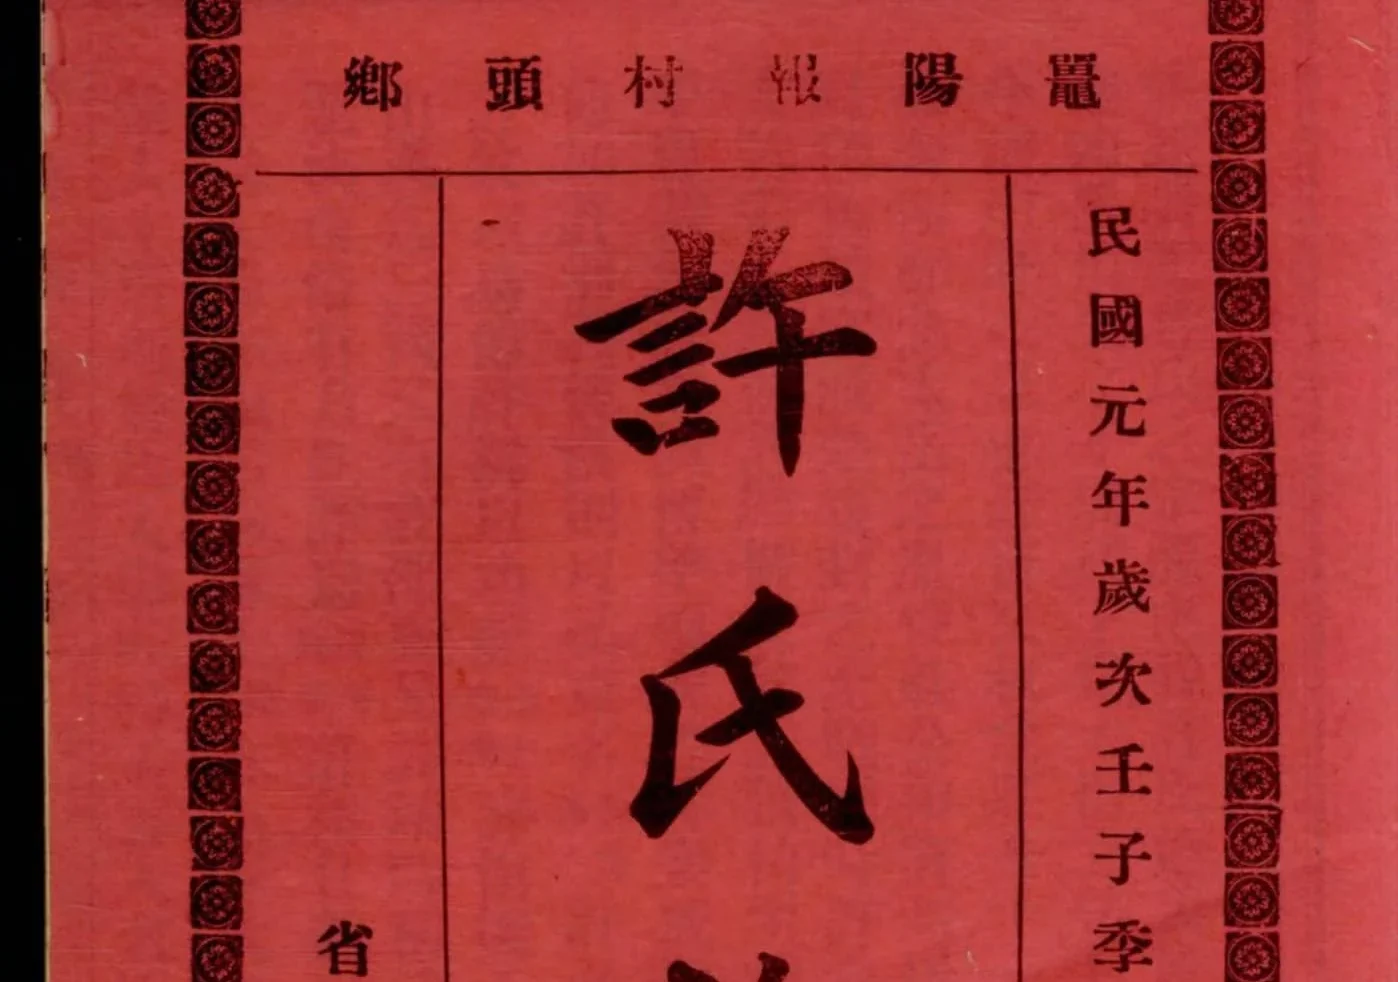 鼉陽報村頭鄉
民國元年歲次壬子季
許氏
省